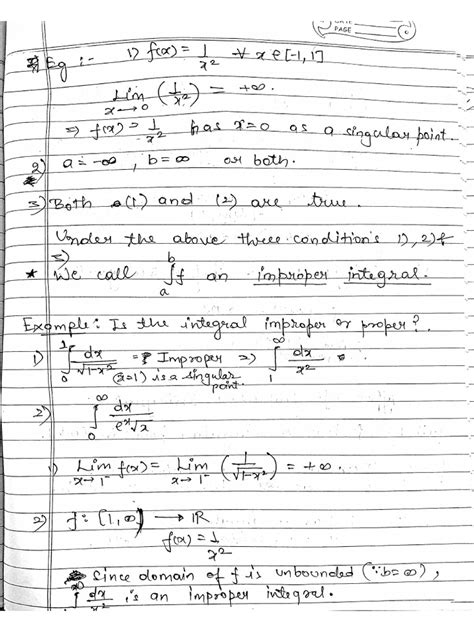 PAGE
Eg :- 1) f(x) = 1/x² ∀ x ∈ [-1, 1]
Lim x→0 (1/x²) = +∞.
⇒ f(x) = 1/x² has x=0 as a singular point.
2) a = -∞, b = ∞ or both.
3) Both (1) and (2) are true.
Under the above three condition's 1), 2) &
3)
* We call ∫_a^b f an improper integral.
Example: Is the integral improper or proper?
1) ∫_0^1 dx/√(1-x²) = Improper ⇒ ∫_1^∞ dx/x²
(x=1) is a singular point.
2) ∫_0^∞ dx/(eˣ√x)
1) Lim x→1⁻ f(x) = Lim x→1⁻ (1/√(1-x²)) = +∞.
2) f: [1, ∞) → ℝ
f(x) = 1/x²
Since domain of f is unbounded (∵ b=∞),
∫_1^∞ dx/x² is an improper integral.